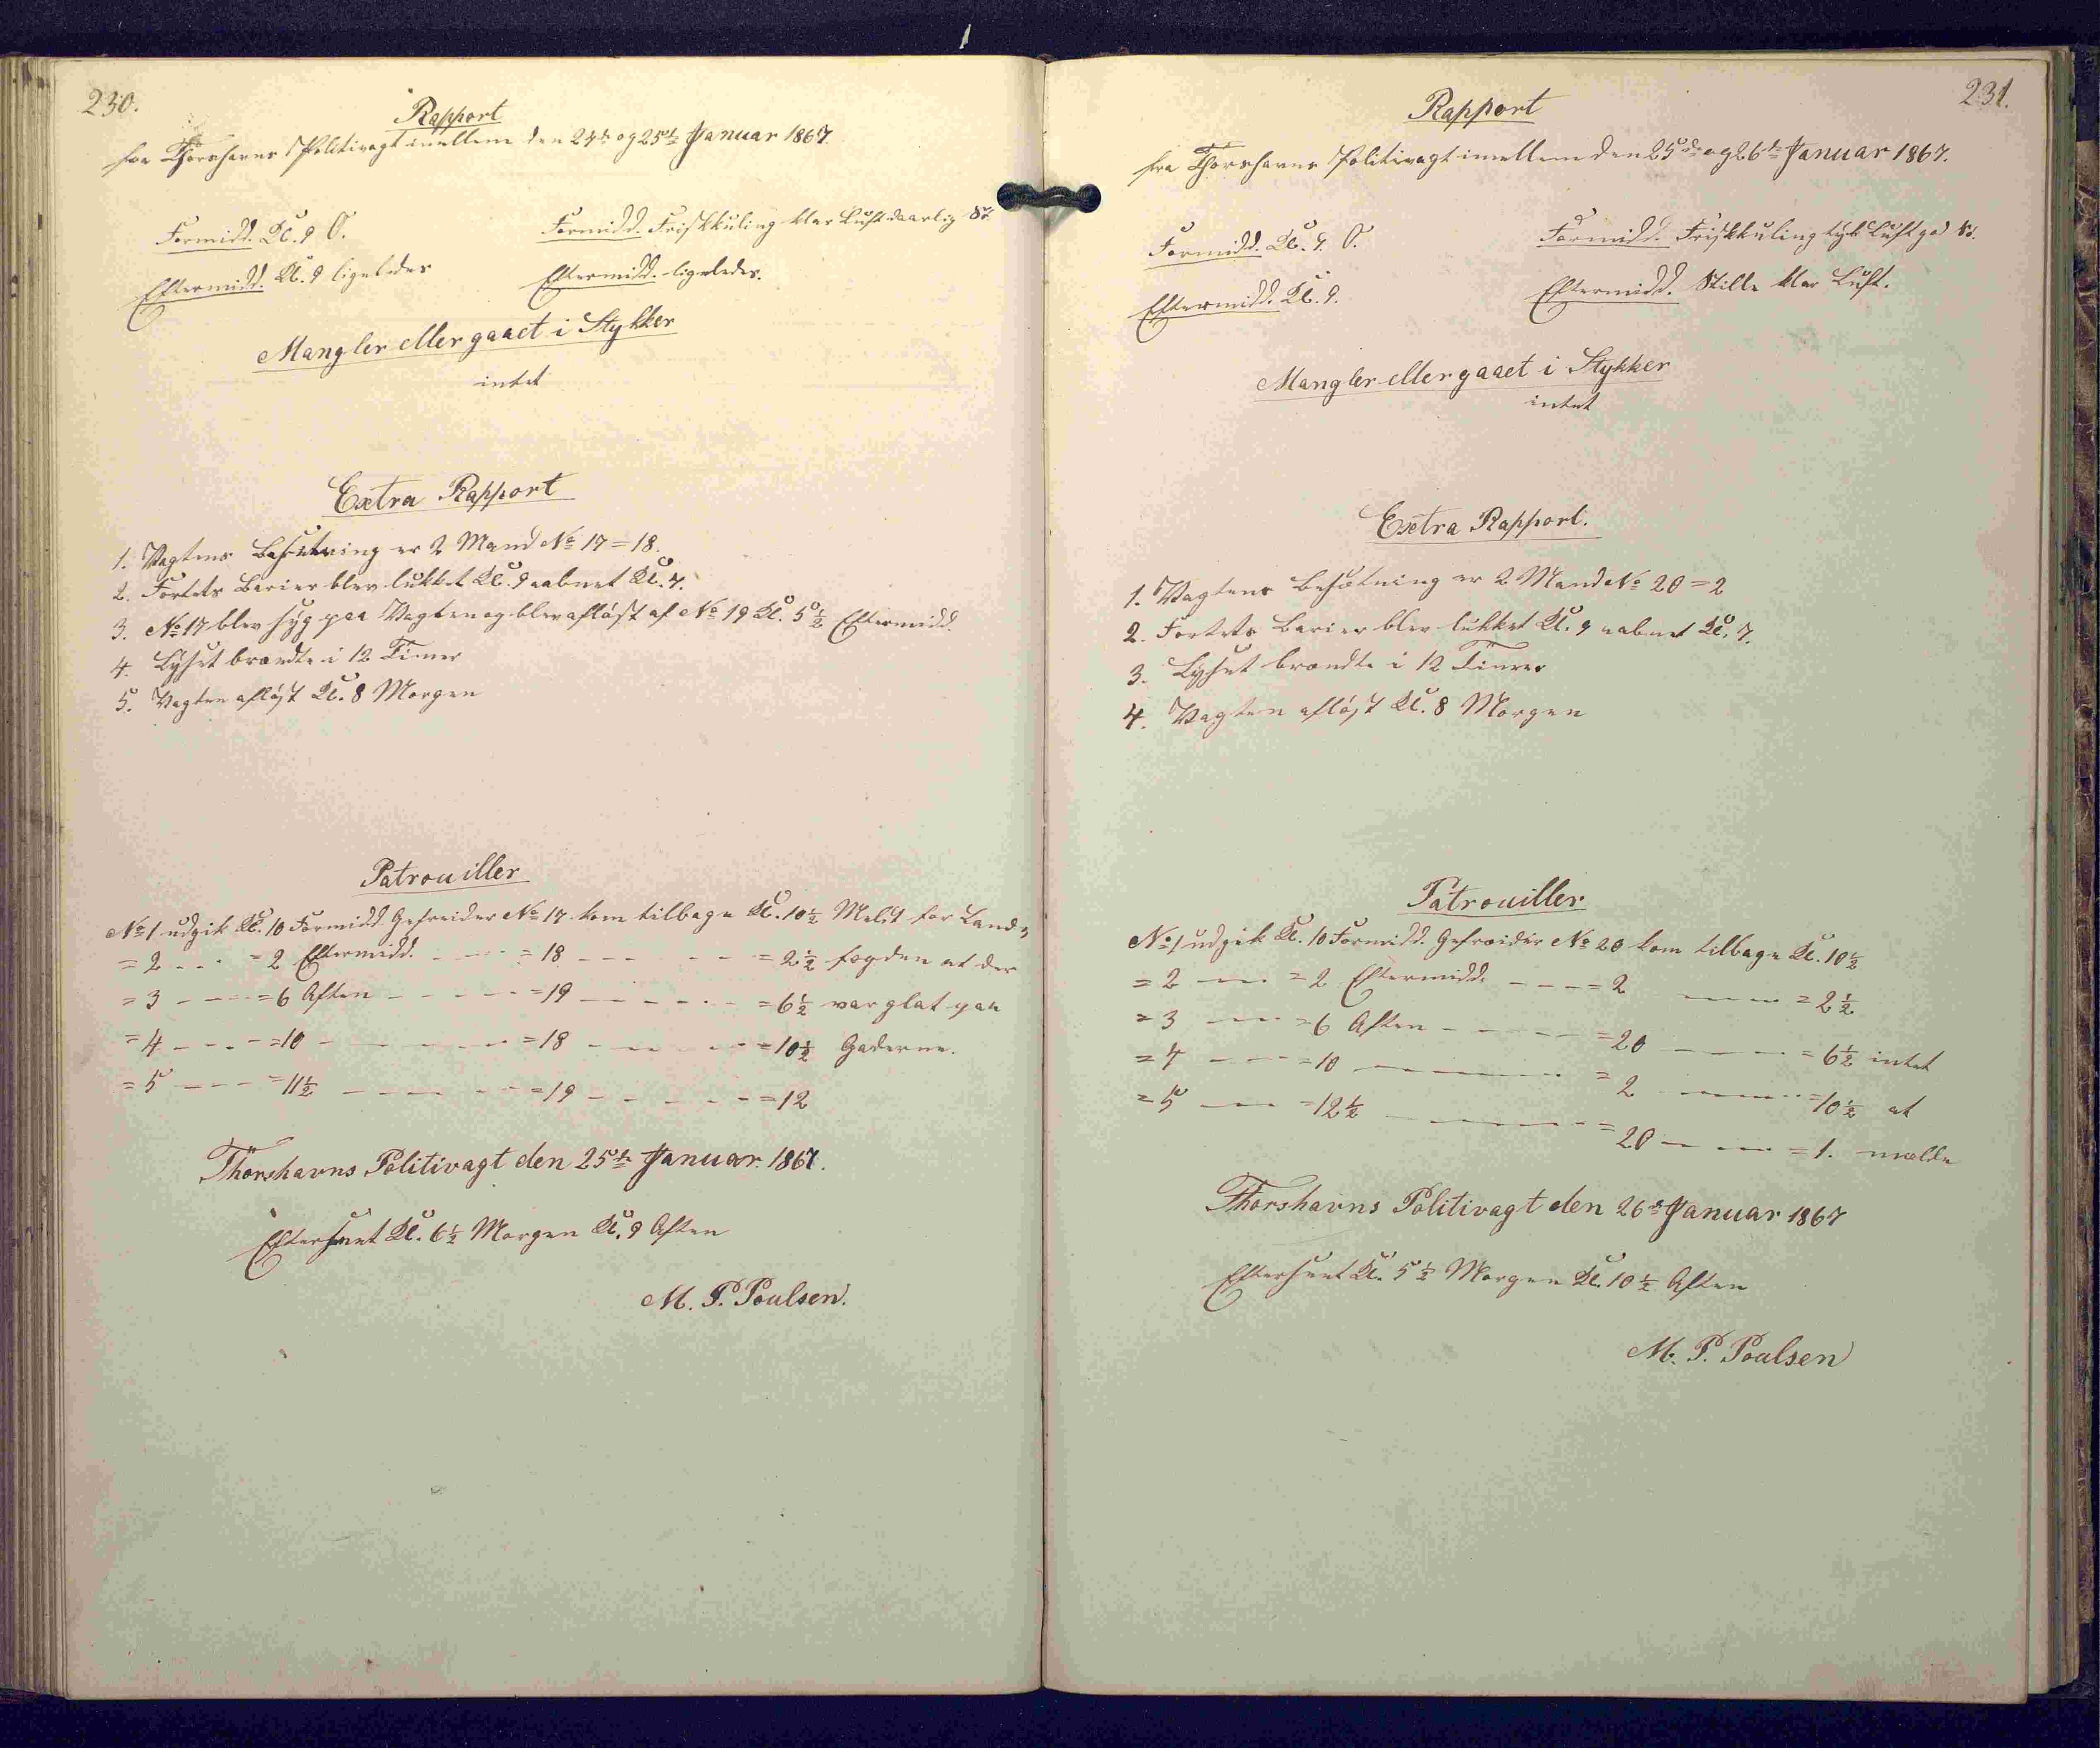 230.
Rapport
fra Thorshavns Politivagt imellem den 24de og 25de Januar 1867.
Formidd. Kl. 9 O. Formidd. Friskkuling klar Luft daarlig Sø.
Eftermidd. Kl. 9 ligeledes Eftermidd. ligeledes.
Mangler eller gaaet i Stykker
intet
Extra Rapport
1. Vagtens Besætning er 2 Mand No 17 = 18.
2. Fortets Barier blev lukket Kl. 9 aabnet Kl. 7.
3. No 17 blev syg paa Vagten og blev afløst af No 19 Kl. 5 ½ Eftermidd.
4. Lyset brændte i 12 Timer
5. Vagten afløst Kl. 8 Morgen
Patrouiller
No 1 udgik Kl. 10 Formidd. Gefreider No 17 kom tilbage Kl. 10 ½ Meldt for Land=
= 2 - - - = 2 Eftermidd. - - - = 18 - - - - - = 2 ½ fogden at der
= 3 - - - = 6 Aften - - - - - = 19 - - - - - = 6 ½ var glat paa
= 4 - - - = 10 - - - - - = 18 - - - - - = 10 ½ Gaderne.
= 5 - - - = 11 ½ - - - - - = 19 - - - - - = 12
Thorshavns Politivagt den 25de Januar 1867.
Efterseet Kl. 6 ½ Morgen Kl. 9 Aften
M. P. Poulsen.
231.
Rapport
fra Thorshavns Politivagt imellem den 25de og 26de Januar 1867.
Formidd. Kl. 9. O. Formidd. Friskkuling tyk Luft god Sø.
Eftermidd. Kl. 9. Eftermidd. Stille klar Luft.
Mangler eller gaaet i Stykker
intet
Extra Rapport.
1. Vagtens Besætning er 2 Mand No 20 = 2
2. Fortets Barier blev lukket Kl. 9 aabnet Kl. 7.
3. Lyset brændte i 12 Timer
4. Vagten afløst Kl. 8 Morgen
Patrouiller
No 1 udgik Kl. 10 Formidd. Gefreider No 20 kom tilbage Kl. 10 ½
= 2 - - - = 2 Eftermidd. - - - = 2 - - - = 2 ½
= 3 - - - = 6 Aften - - - - - = 20 - - - = 6 ½ intet
= 4 - - - = 10 - - - - - = 2 - - - = 10 ½ at
= 5 - - - = 12 ½ - - - - - = 20 - - - = 1. melde
Thorshavns Politivagt den 26de Januar 1867
Efterseet Kl. 5 ½ Morgen Kl. 10 ½ Aften
M. P. Poulsen